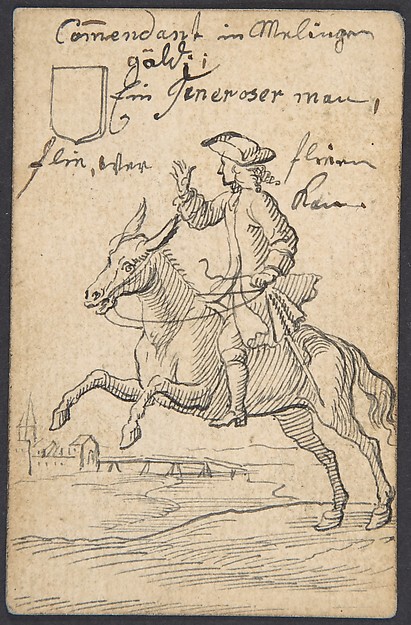 Com̄endant in Melingen
göldi:
Ein Generoser man,
flin, wer fliein
kan